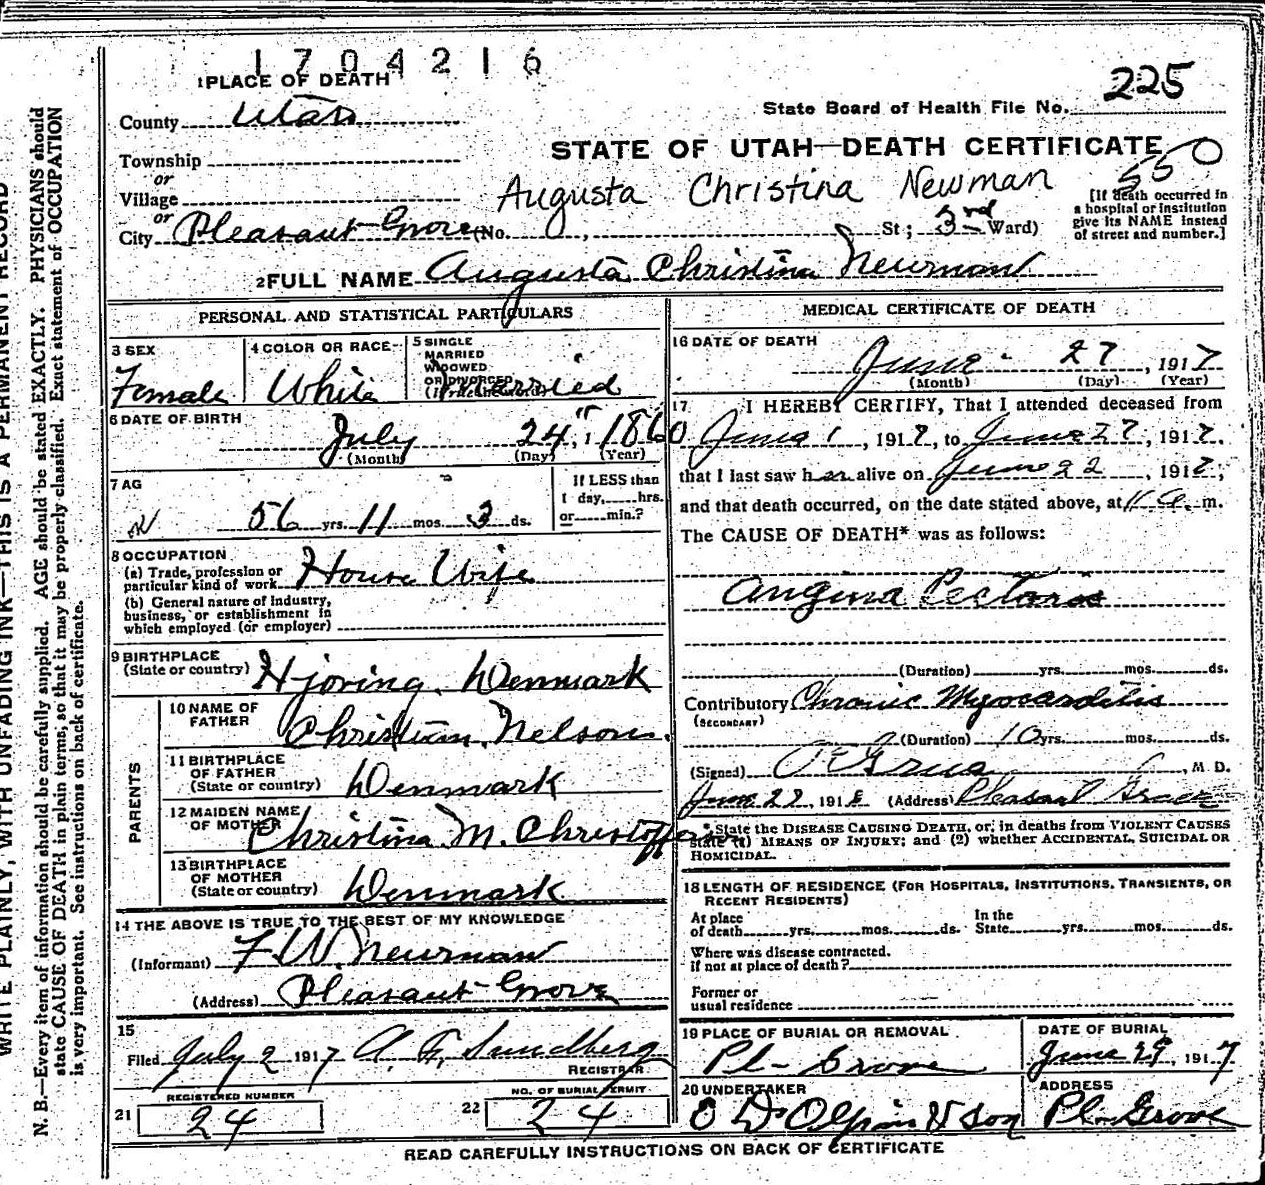 1704216
1 PLACE OF DEATH
225
State Board of Health File No.
County Utah
STATE OF UTAH—DEATH CERTIFICATE
550
Township
or
Village
Augusta Christina Newman
[If death occurred in
a hospital or institution
give its NAME instead
of street and number.]
or
City Pleasant Grove (No. , St; 3rd Ward)
2 FULL NAME Augusta Christina Newman
PERSONAL AND STATISTICAL PARTICULARS
3 SEX Female
4 COLOR OR RACE White
5 SINGLE
MARRIED
WIDOWED
OR DIVORCED
(Write the word) Married
6 DATE OF BIRTH
July 24" 1860
(Month) (Day) (Year)
7 AG
56 yrs. 11 mos. 3 ds.
If LESS than
1 day, hrs.
or min.?
8 OCCUPATION
(a) Trade, profession or
particular kind of work House Wife
(b) General nature of industry,
business, or establishment in
which employed (or employer)
9 BIRTHPLACE
(State or country) Hjoring, Denmark
PARENTS
10 NAME OF
FATHER Christian Nelson.
11 BIRTHPLACE
OF FATHER
(State or country) Denmark
12 MAIDEN NAME
OF MOTHER Christina M. Christofferson
13 BIRTHPLACE
OF MOTHER
(State or country) Denmark
14 THE ABOVE IS TRUE TO THE BEST OF MY KNOWLEDGE
(Informant) F W. Newman
(Address) Pleasant Grove
15
Filed July 2 1917 A. F. Sundberg
REGISTRAR
REGISTERED NUMBER
21 24
NO. OF BURIAL PERMIT
22 24
MEDICAL CERTIFICATE OF DEATH
16 DATE OF DEATH
June 27, 1917
(Month) (Day) (Year)
17 I HEREBY CERTIFY, That I attended deceased from
June 1, 1917, to June 27, 1917,
that I last saw her alive on June 22, 1917,
and that death occurred, on the date stated above, at 11 a. m.
The CAUSE OF DEATH* was as follows:
Angina Pectoris
(Duration) yrs. mos. ds.
Contributory Chronic Myocarditis
(SECONDARY)
(Duration) 10 yrs. mos. ds.
(Signed) Grua, M. D.
June 191 (Address) Pleasant Grove
*State the DISEASE CAUSING DEATH, or, in deaths from VIOLENT CAUSES
state (1) MEANS OF INJURY; and (2) whether ACCIDENTAL, SUICIDAL OR
HOMICIDAL.
18 LENGTH OF RESIDENCE (FOR HOSPITALS, INSTITUTIONS, TRANSIENTS, OR
RECENT RESIDENTS)
At place
of death yrs. mos. ds.
In the
State yrs. mos. ds.
Where was disease contracted.
if not at place of death?
Former or
usual residence
19 PLACE OF BURIAL OR REMOVAL
Pl- Grove
DATE OF BURIAL
June 29, 1917
20 UNDERTAKER
Olpin & Son
ADDRESS
Pl- Grove
READ CAREFULLY INSTRUCTIONS ON BACK OF CERTIFICATE
WRITE PLAINLY, WITH UNFADING INK—THIS IS A PERMANENT RECORD
N. B.—Every item of information should be carefully supplied. AGE should be stated EXACTLY. PHYSICIANS should
state CAUSE OF DEATH in plain terms, so that it may be properly classified. Exact statement of OCCUPATION
is very important. See instructions on back of certificate.